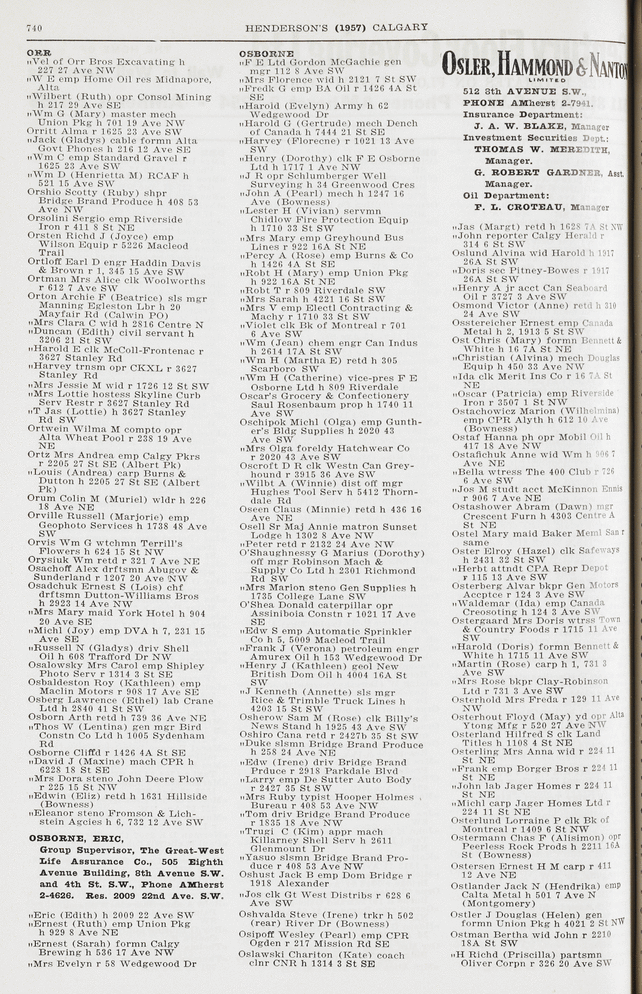 740
HENDERSON'S (1957) CALGARY
ORR
„Vel of Orr Bros Excavating h
227 27 Ave NW
„W E emp Home Oil res Midnapore,
Alta
„Wilbert (Ruth) opr Consol Mining
h 217 29 Ave SE
„Wm G (Mary) master mech
Union Pkg h 701 19 Ave NW
Orritt Alma r 1625 23 Ave SW
„Jack (Gladys) cable formn Alta
Govt Phones h 216 12 Ave SE
„Wm C emp Standard Gravel r
1625 23 Ave SW
„Wm D (Henrietta M) RCAF h
521 15 Ave SW
Orshio Scotty (Ruby) shpr
Bridge Brand Produce h 408 53
Ave NW
Orsolini Sergio emp Riverside
Iron r 411 8 St NE
Orsten Richd J (Joyce) emp
Wilson Equip r 5226 Macleod
Trail
Ortloff Earl D engr Haddin Davis
& Brown r 1, 345 15 Ave SW
Ortman Mrs Alice clk Woolworths
r 612 7 Ave SW
Orton Archie F (Beatrice) sls mgr
Manning Egleston Lbr h 20
Mayfair Rd (Calwin PO)
„Mrs Clara C wid h 2816 Centre N
„Duncan (Edith) civil servant h
3206 21 St SW
„Harold E clk McColl-Frontenac r
3627 Stanley Rd
„Harvey trnsm opr CKXL r 3627
Stanley Rd
„Mrs Jessie M wid r 1726 12 St SW
„Mrs Lottie hostess Skyline Curb
Serv Restr r 3627 Stanley Rd
„T Jas (Lottie) h 3627 Stanley
Rd SW
Ortwein Wilma M compto opr
Alta Wheat Pool r 238 19 Ave
NE
Ortz Mrs Andrea emp Calgy Pkrs
r 2205 27 St SE (Albert Pk)
„Louis (Andrea) carp Burns &
Dutton h 2205 27 St SE (Albert
Pk)
Orum Colin M (Muriel) wldr h 226
18 Ave NE
Orville Russell (Marjorie) emp
Geophoto Services h 1738 48 Ave
SW
Orvis Wm G wtchmn Terrill's
Flowers h 624 15 St NW
Orysiuk Wm r 321 7 Ave NE
Osachoff Alex drftsmn Abugov &
Sunderland r 1207 20 Ave NW
Osadchuk Ernest S (Lois) chf
drftsmn Dutton-Williams Bros
h 2923 14 Ave NW
„Mrs Mary maid York Hotel h 904
20 Ave SE
„Michl (Joy) emp DVA h 7, 231 15
Ave SE
„Russell N (Gladys) driv Shell
Oil h 608 Trafford Dr NW
Osalowsky Mrs Carol emp Shipley
Photo Serv r 1314 3 St SE
Osbaldeston Roy (Kathleen) emp
Maclin Motors r 908 17 Ave SE
Osberg Lawrence (Ethel) lab Crane
Ltd h 2840 41 St SW
Osborn Arth retd h 739 36 Ave NE
„Thos W (Lentina) gen mgr Bird
Constn Co Ltd h 1005 Sydenham
Rd
Osborne Cliffd r 1426 4A St SE
„David J (Maxine) mach CPR h
6228 18 St SE
„Mrs Dora steno John Deere Plow
r 225 15 St NW
„Edwin (Eliz) retd h 1631 Hillside
(Bowness)
„Eleanor steno Fromson & Lich-
stein Agcies h 6, 732 12 Ave SW
OSBORNE, ERIC,
Group Supervisor, The Great-West
Life Assurance Co., 505 Eighth
Avenue Building, 8th Avenue S.W.
and 4th St. S.W., Phone AMherst
2-4626. Res. 2009 22nd Ave. S.W.
„Eric (Edith) h 2009 22 Ave SW
„Ernest (Ruth) emp Union Pkg
h 929 8 Ave NE
„Ernest (Sarah) formn Calgy
Brewing h 536 17 Ave NW
„Mrs Evelyn r 58 Wedgewood Dr
OSBORNE
„F E Ltd Gordon McGachie gen
mgr 112 8 Ave SW
„Mrs Florence wid h 2121 7 St SW
„Fredk G emp BA Oil r 1426 4A St
SE
„Harold (Evelyn) Army h 62
Wedgewood Dr
„Harold G (Gertrude) mech Dench
of Canada h 7444 21 St SE
„Harvey (Florecne) r 1021 13 Ave
SW
„Henry (Dorothy) clk F E Osborne
Ltd h 1717 1 Ave NW
„J R opr Schlumberger Well
Surveying h 34 Greenview Cres
„John A (Pearl) mech h 1247 16
Ave (Bowness)
„Lester H (Vivian) servmn
Chidlow Fire Protection Equip
h 1710 33 St SW
„Mrs Mary emp Greyhound Bus
Lines r 922 16A St NE
„Percy A (Rose) emp Burns & Co
h 1426 4A St SE
„Robt H (Mary) emp Union Pkg
h 922 16A St NE
„Robt T r 809 Riverdale SW
„Mrs Sarah h 4221 16 St SW
„Mrs V emp Electl Contracting &
Machy r 1710 33 St SW
„Violet clk Bk of Montreal r 701
6 Ave SW
„Wm (Jean) chem engr Can Indus
h 2614 17A St SW
„Wm H (Martha E) retd h 305
Scarboro SW
„Wm H (Catherine) vice-pres F E
Osborne Ltd h 809 Riverdale
Oscar's Grocery & Confectionery
Saul Rosenbaum prop h 1740 11
Ave SW
Oschipok Michl (Olga) emp Gunth-
er's Bldg Supplies h 2020 43
Ave SW
„Mrs Olga foreldy Hatchwear Co
r 2020 43 Ave SW
Oscroft D R clk Westn Can Grey-
hound r 3915 36 Ave SW
„Wilbt A (Winnie) dist off mgr
Hughes Tool Serv h 5412 Thorn-
dale Rd
Oseen Claus (Minnie) retd h 436 16
Ave NW
Osell Sr Maj Annie matron Sunset
Lodge h 1302 8 Ave NW
„Peter retd r 2132 24 Ave NW
O'Shaughnessy G Marius (Dorothy)
off mgr Robinson Mach &
Supply Co Ltd h 2301 Richmond
Rd SW
„Mrs Marion steno Gen Supplies h
1735 College Lane SW
O'Shea Donald caterpillar opr
Assiniboia Constn r 1021 17 Ave
SE
„Edw S emp Automatic Sprinkler
Co h 5, 5009 Macleod Trail
„Frank J (Verona) petroleum engr
Amurex Oil h 153 Wedgewood Dr
„Henry J (Kathleen) geol New
British Dom Oil h 4004 16A St
SW
„J Kenneth (Annette) sls mgr
Rice & Trimble Truck Lines h
4203 15 St SW
Osherow Sam M (Rose) clk Billy's
News Stand h 1925 43 Ave SW
Oshiro Cana retd r 2427b 35 St SW
„Duke slsmn Bridge Brand Produce
h 258 24 Ave NE
„Edw (Irene) driv Bridge Brand
Prduce r 2918 Parkdale Blvd
„Larry emp De Sutter Auto Body
r 2427 35 St SW
„Mrs Ruby typist Hooper Holmes
Bureau r 408 53 Ave NW
„Tom driv Bridge Brand Produce
r 1835 18 Ave NW
„Trugi C (Kim) appr mach
Killarney Shell Serv h 2611
Glenmount Dr
„Yasuo slsmn Bridge Brand Pro-
duce r 408 53 Ave NW
Oshust Jack B emp Dom Bridge r
1918 Alexander
„Jos clk Gt West Distribs r 628 6
Ave SW
Oshvalda Steve (Irene) trkr h 502
(rear) River Dr (Bowness)
Osipoff Wesley (Pearl) emp CPR
Ogden r 217 Mission Rd SE
Oslawski Chariton (Kate) coach
clnr CNR h 1314 3 St SE
OSLER, HAMMOND & NANTON
LIMITED
512 8th AVENUE S.W.,
PHONE AMherst 2-7941.
Insurance Department:
J. A. W. BLAKE, Manager
Investment Securities Dept.:
THOMAS W. MEREDITH,
Manager.
G. ROBERT GARDNER, Asst.
Manager.
Oil Department:
F. L. CROTEAU, Manager
„Jas (Margt) retd h 1628 7A St NW
„John reporter Calgy Herald r
314 6 St SW
Oslund Alvina wid Harold h 1917
26A St SW
„Doris sec Pitney-Bowes r 1917
26A St SW
„Henry A jr acct Can Seaboard
Oil r 3727 3 Ave SW
Osmond Victor (Anne) retd h 310
24 Ave SW
Osstereicher Ernest emp Canada
Metal h 2, 1913 5 St SW
Ost Chris (Mary) formn Bennett &
White h 16 7A St NE
„Christian (Alvina) mech Douglas
Equip h 450 33 Ave NW
„Ida clk Merit Ins Co r 16 7A St
NE
„Oscar (Patricia) emp Riverside
Iron r 3507 1 St NW
Ostachowicz Marion (Wilhelmina)
emp CPR Alyth h 612 10 Ave
(Bowness)
Ostaf Hanna ph opr Mobil Oil h
417 18 Ave NW
Ostafichuk Anne wid Wm h 506 7
Ave NE
„Bella wtress The 400 Club r 726
6 Ave SW
„Jos M studt acct McKinnon Ennis
r 906 7 Ave NE
Ostashower Abram (Dawn) mgr
Crescent Furn h 4303 Centre A
St NE
Ostel Mary maid Baker Meml San r
same
Oster Elroy (Hazel) clk Safeways
h 2431 32 St SW
„Herbt attndt CPA Repr Depot
r 115 13 Ave SW
Osterberg Alvar bkpr Gen Motors
Accptce r 124 3 Ave SW
„Waldemar (Ida) emp Canada
Creosoting h 124 3 Ave SW
Ostergaard Mrs Doris wtrss Town
& Country Foods r 1715 11 Ave
SW
„Harold (Doris) formn Bennett &
White h 1715 11 Ave SW
„Martin (Rose) carp h 1, 731 3
Ave SW
„Mrs Rose bkpr Clay-Robinson
Ltd r 731 3 Ave SW
Osterhold Mrs Freda r 129 11 Ave
NW
Osterhout Floyd (May) yd opr Alta
Ytong Mfg r 520 27 Ave NW
Osterland Hilfred S clk Land
Titles h 1108 4 St NE
Osterling Mrs Anna wid r 224 11
St NE
„Frank emp Borger Bros r 224 11
St NE
„John lab Jager Homes r 224 11
St NE
„Michl carp Jager Homes Ltd r
224 11 St NE
Osterlund Lorraine P clk Bk of
Montreal r 1409 6 St NW
Ostermann Chas F (Alisimon) opr
Peerless Rock Prods h 2211 16A
St (Bowness)
Ostersen Ernest H M carp r 411
12 Ave NE
Ostlander Jack N (Hendrika) emp
Calta Metal h 501 7 Ave N
(Montgomery)
Ostler J Douglas (Helen) gen
formn Union Pkg h 4021 2 St NW
Ostman Bertha wid John r 2210
18A St SW
„H Richd (Priscilla) partsmn
Oliver Corpn r 326 20 Ave SW